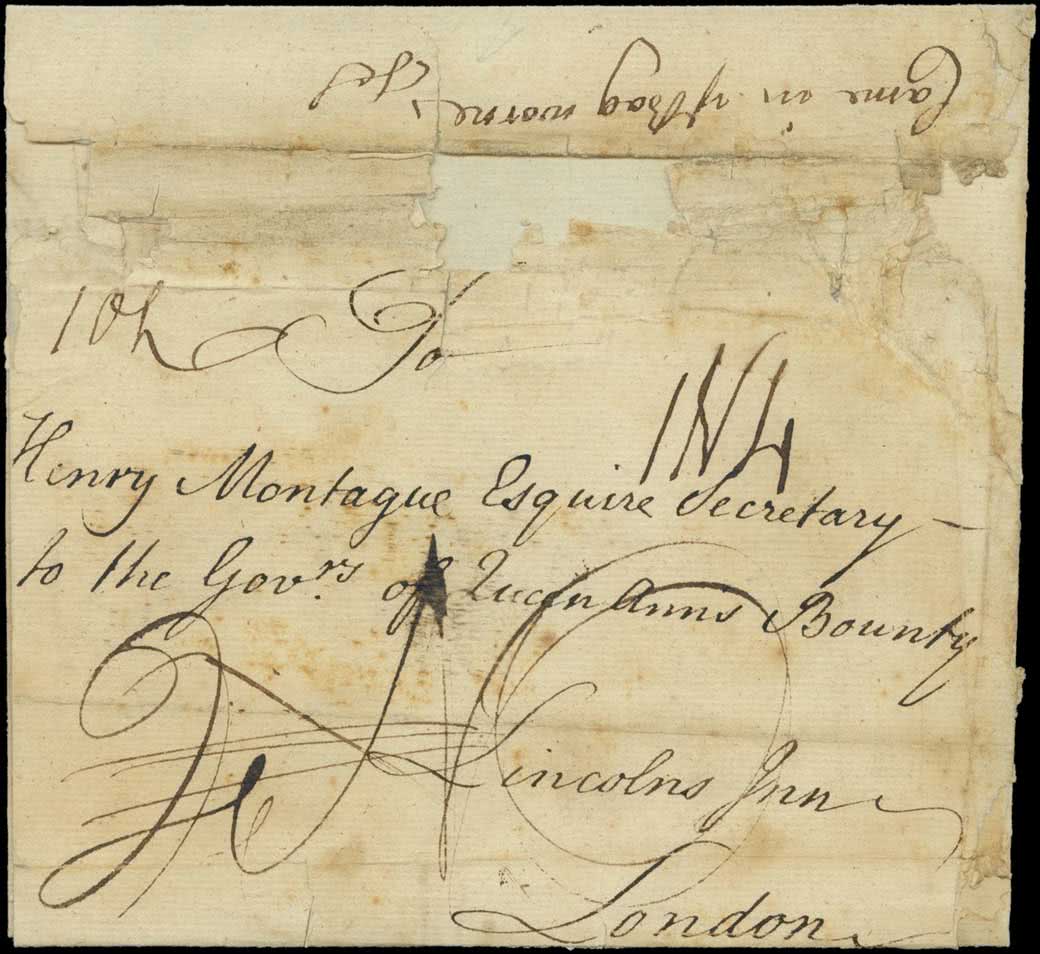 Came in yͤ Bag worne
To
Henry Montague Esquire Secretary
to the Govʳˢ of Queen Anns Bounty
Lincolns Inn
London